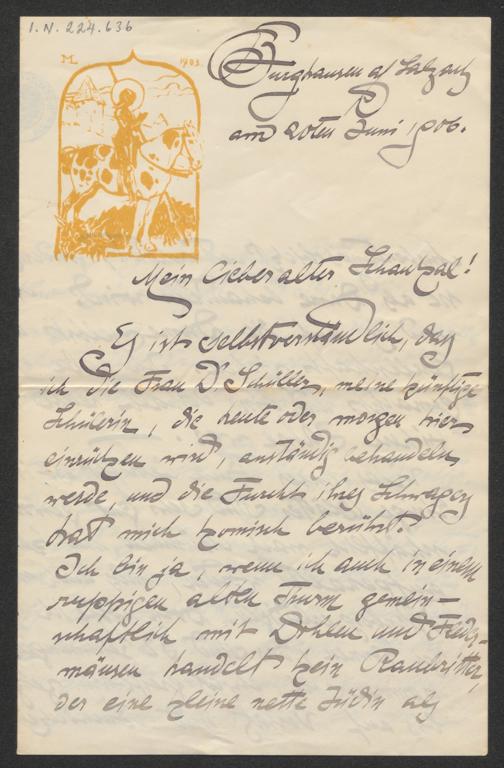 I.N. 224.636
ML 1903.
Burghausen a/ Salzach
am 20ten Juni 1906.
Mein lieber alter Schaukal!
Es ist selbstverständlich, daß
ich die Frau Dr. Schüller, meine künftige
Schülerin, die heute oder morgen hier
einrücken wird, anständig behandeln
werde, und die Furcht ihres Schwagers
hat mich komisch berührt.
Ich bin ja, wenn ich auch in einem
ruppigen alten Turm gemein-
schaftlich mit Dohlen und Fleder-
mäusen haust kein Raubritter,
der eine kleine nette Jüdin als